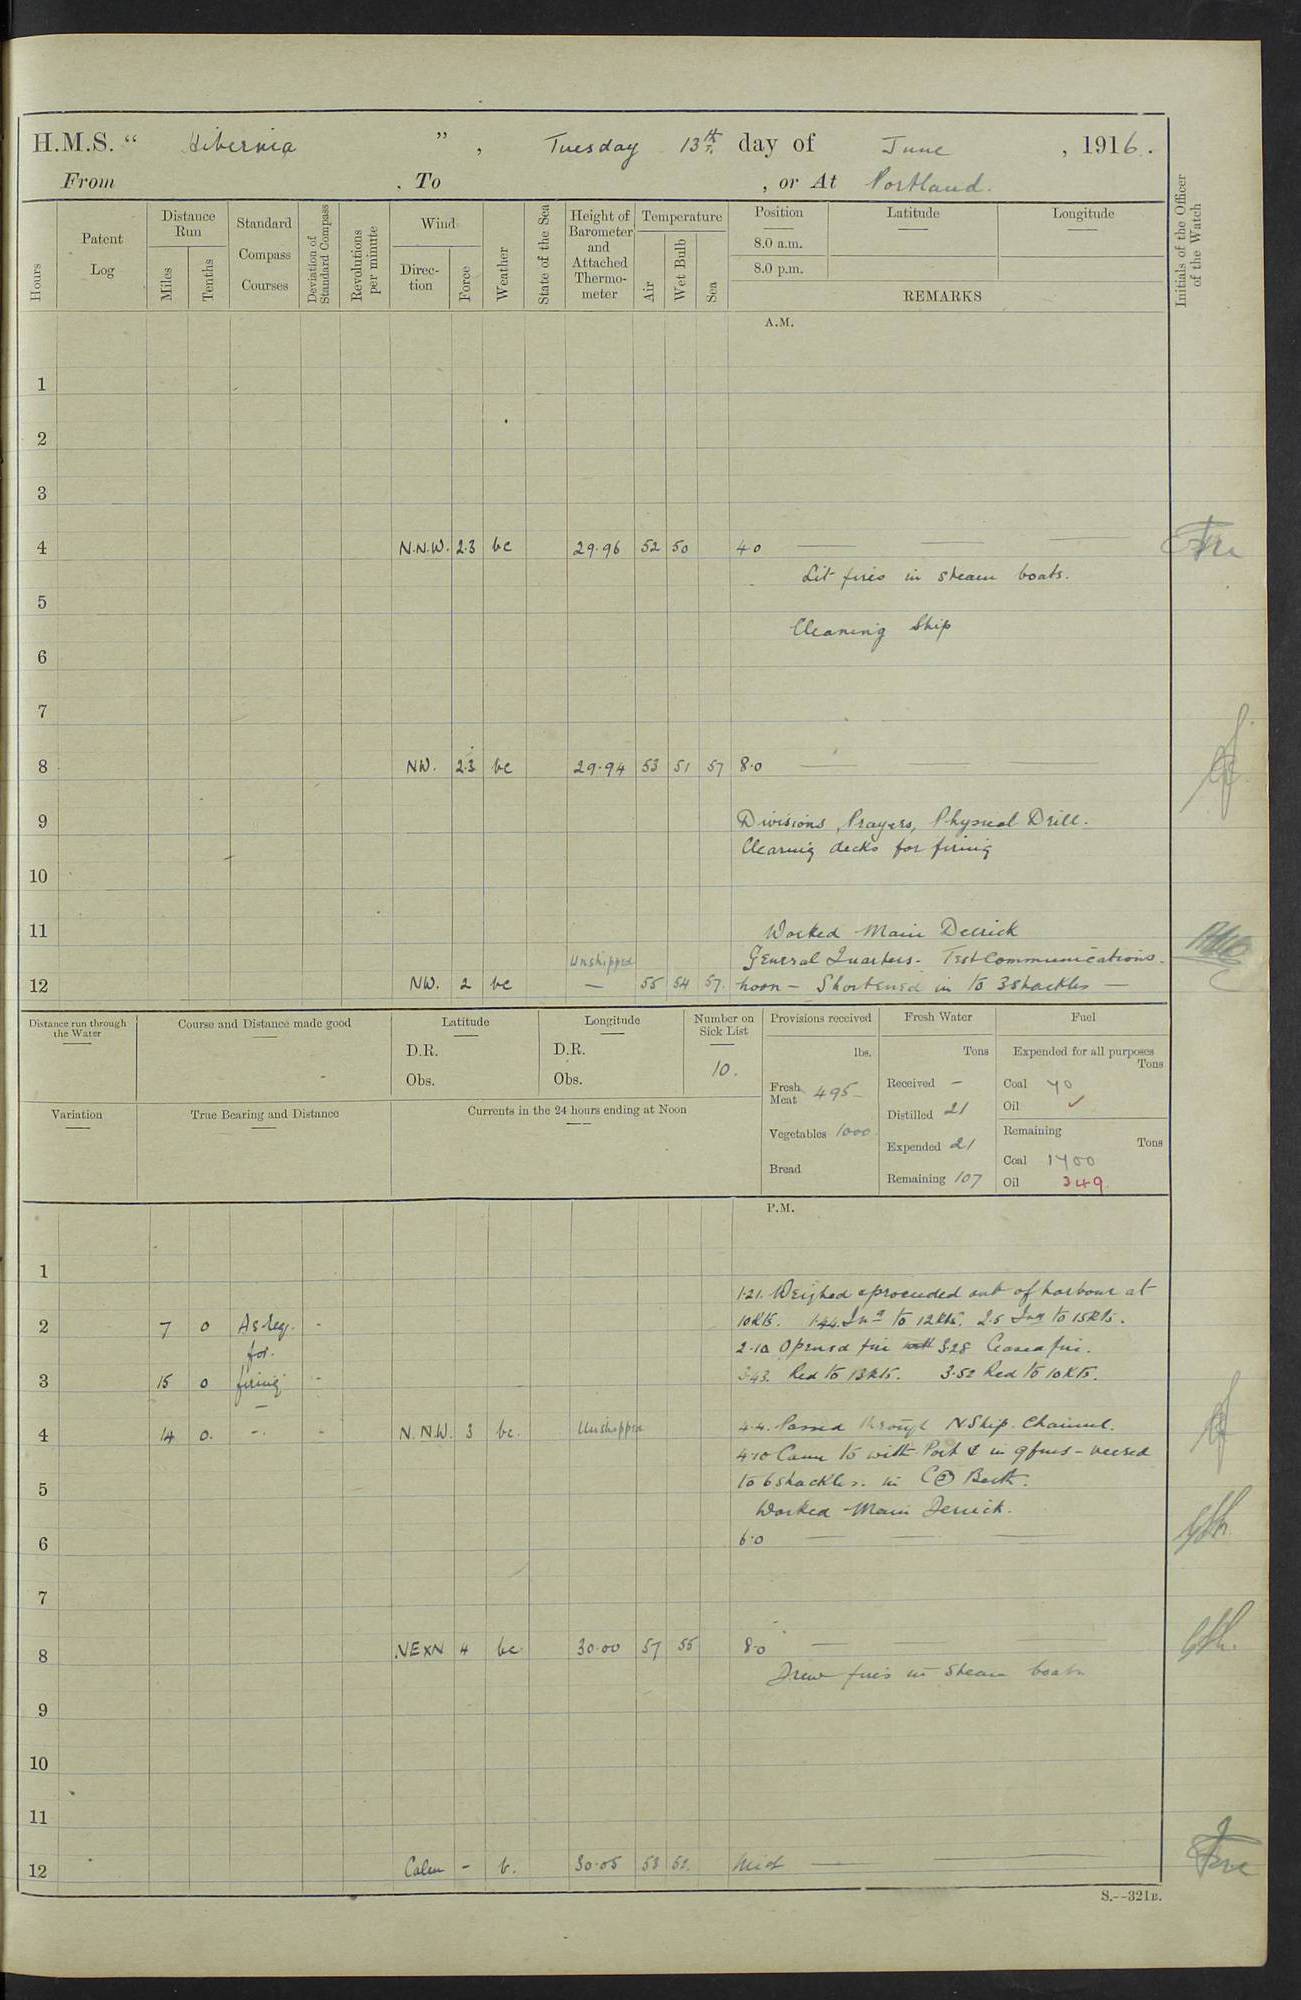 H.M.S. “ Hibernia ”, Tuesday 13th day of June, 1916.
From , To , or At Portland.
Hours
Patent Log
Distance Run
Miles
Tenths
Standard Compass Courses
Deviation of Standard Compass
Revolutions per minute
Wind
Direc-tion
Force
Weather
State of the Sea
Height of Barometer and Attached Thermo-meter
Temperature
Air
Wet Bulb
Sea
Position
8.0 a.m.
8.0 p.m.
Latitude
Longitude
REMARKS
Initials of the Officer of the Watch
A.M.
1
2
3
4 N.N.W. 2.3 bc 29.96 52 50 4.0
Lit fires in steam boats.
5
Cleaning Ship
6
7
8 NW. 2.3 bc 29.94 53 51 57 8.0
9 Divisions, Prayers, Physical Drill.
Clearing decks for firing
10
11 Worked Main Derrick
Unshipped General Quarters - Test Communications.
12 NW. 2 bc — 55 54 57. noon - Shortened in to 3 shackles —
Distance run through the Water
Course and Distance made good
Latitude
D.R.
Obs.
Longitude
D.R.
Obs.
Number on Sick List
10.
Provisions received
lbs.
Fresh Meat 495
Vegetables 1000
Bread
Fresh Water
Tons
Received -
Distilled 21
Expended 21
Remaining 107
Fuel
Expended for all purposes
Tons
Coal 40
Oil ✓
Remaining
Tons
Coal 1400
Oil 349
Variation
True Bearing and Distance
Currents in the 24 hours ending at Noon
P.M.
1
1.21. Weighed & proceeded out of harbour at
2 7 0 As req. 10 Kts. 1.44. Incd to 12 Kts. 2.5 Incd to 15 Kts.
for. 2.10 Opened fire 3.28 Ceased fire.
3 15 0 firing 3.43. Red to 13 Kts. 3.52 Red to 10 Kts.
4 14 0. N.N.W. 3 bc. Unshipped 4.4. Passed through N Ship Channel.
4.10 Came to with Port ⚓ in 9 fms - veered
5 to 6 shackles. in Berth.
Worked Main Derrick.
6 6.0
7
8 NExN 4 bc 30.00 57 55 8.0
Drew fires in steam boats
9
10
11
12 Calm - b. 30.05 53 52. Mid
S.--321B.